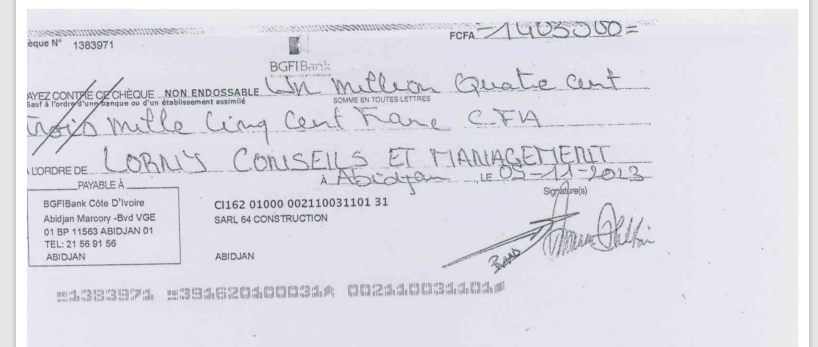 FCFA =1403500=
èque N° 1383971
BGFIBank
AYEZ CONTRE CE CHÈQUE NON ENDOSSABLE Un million Quatre cent
Sauf à l'ordre d'une banque ou d'un établissement assimilé SOMME EN TOUTES LETTRES
trois mille Cinq Cent Franc CFA
L'ORDRE DE LORNI'S CONSEILS ET MANAGEMENT
PAYABLE À À Abidjan , LE 05-11-2023
Signature(s)
BGFIBank Côte D'Ivoire CI162 01000 002110031101 31
Abidjan Marcory -Bvd VGE SARL 64 CONSTRUCTION
01 BP 11563 ABIDJAN 01
TEL: 21 56 91 56
ABIDJAN ABIDJAN
1383971 391620100031 002110031101